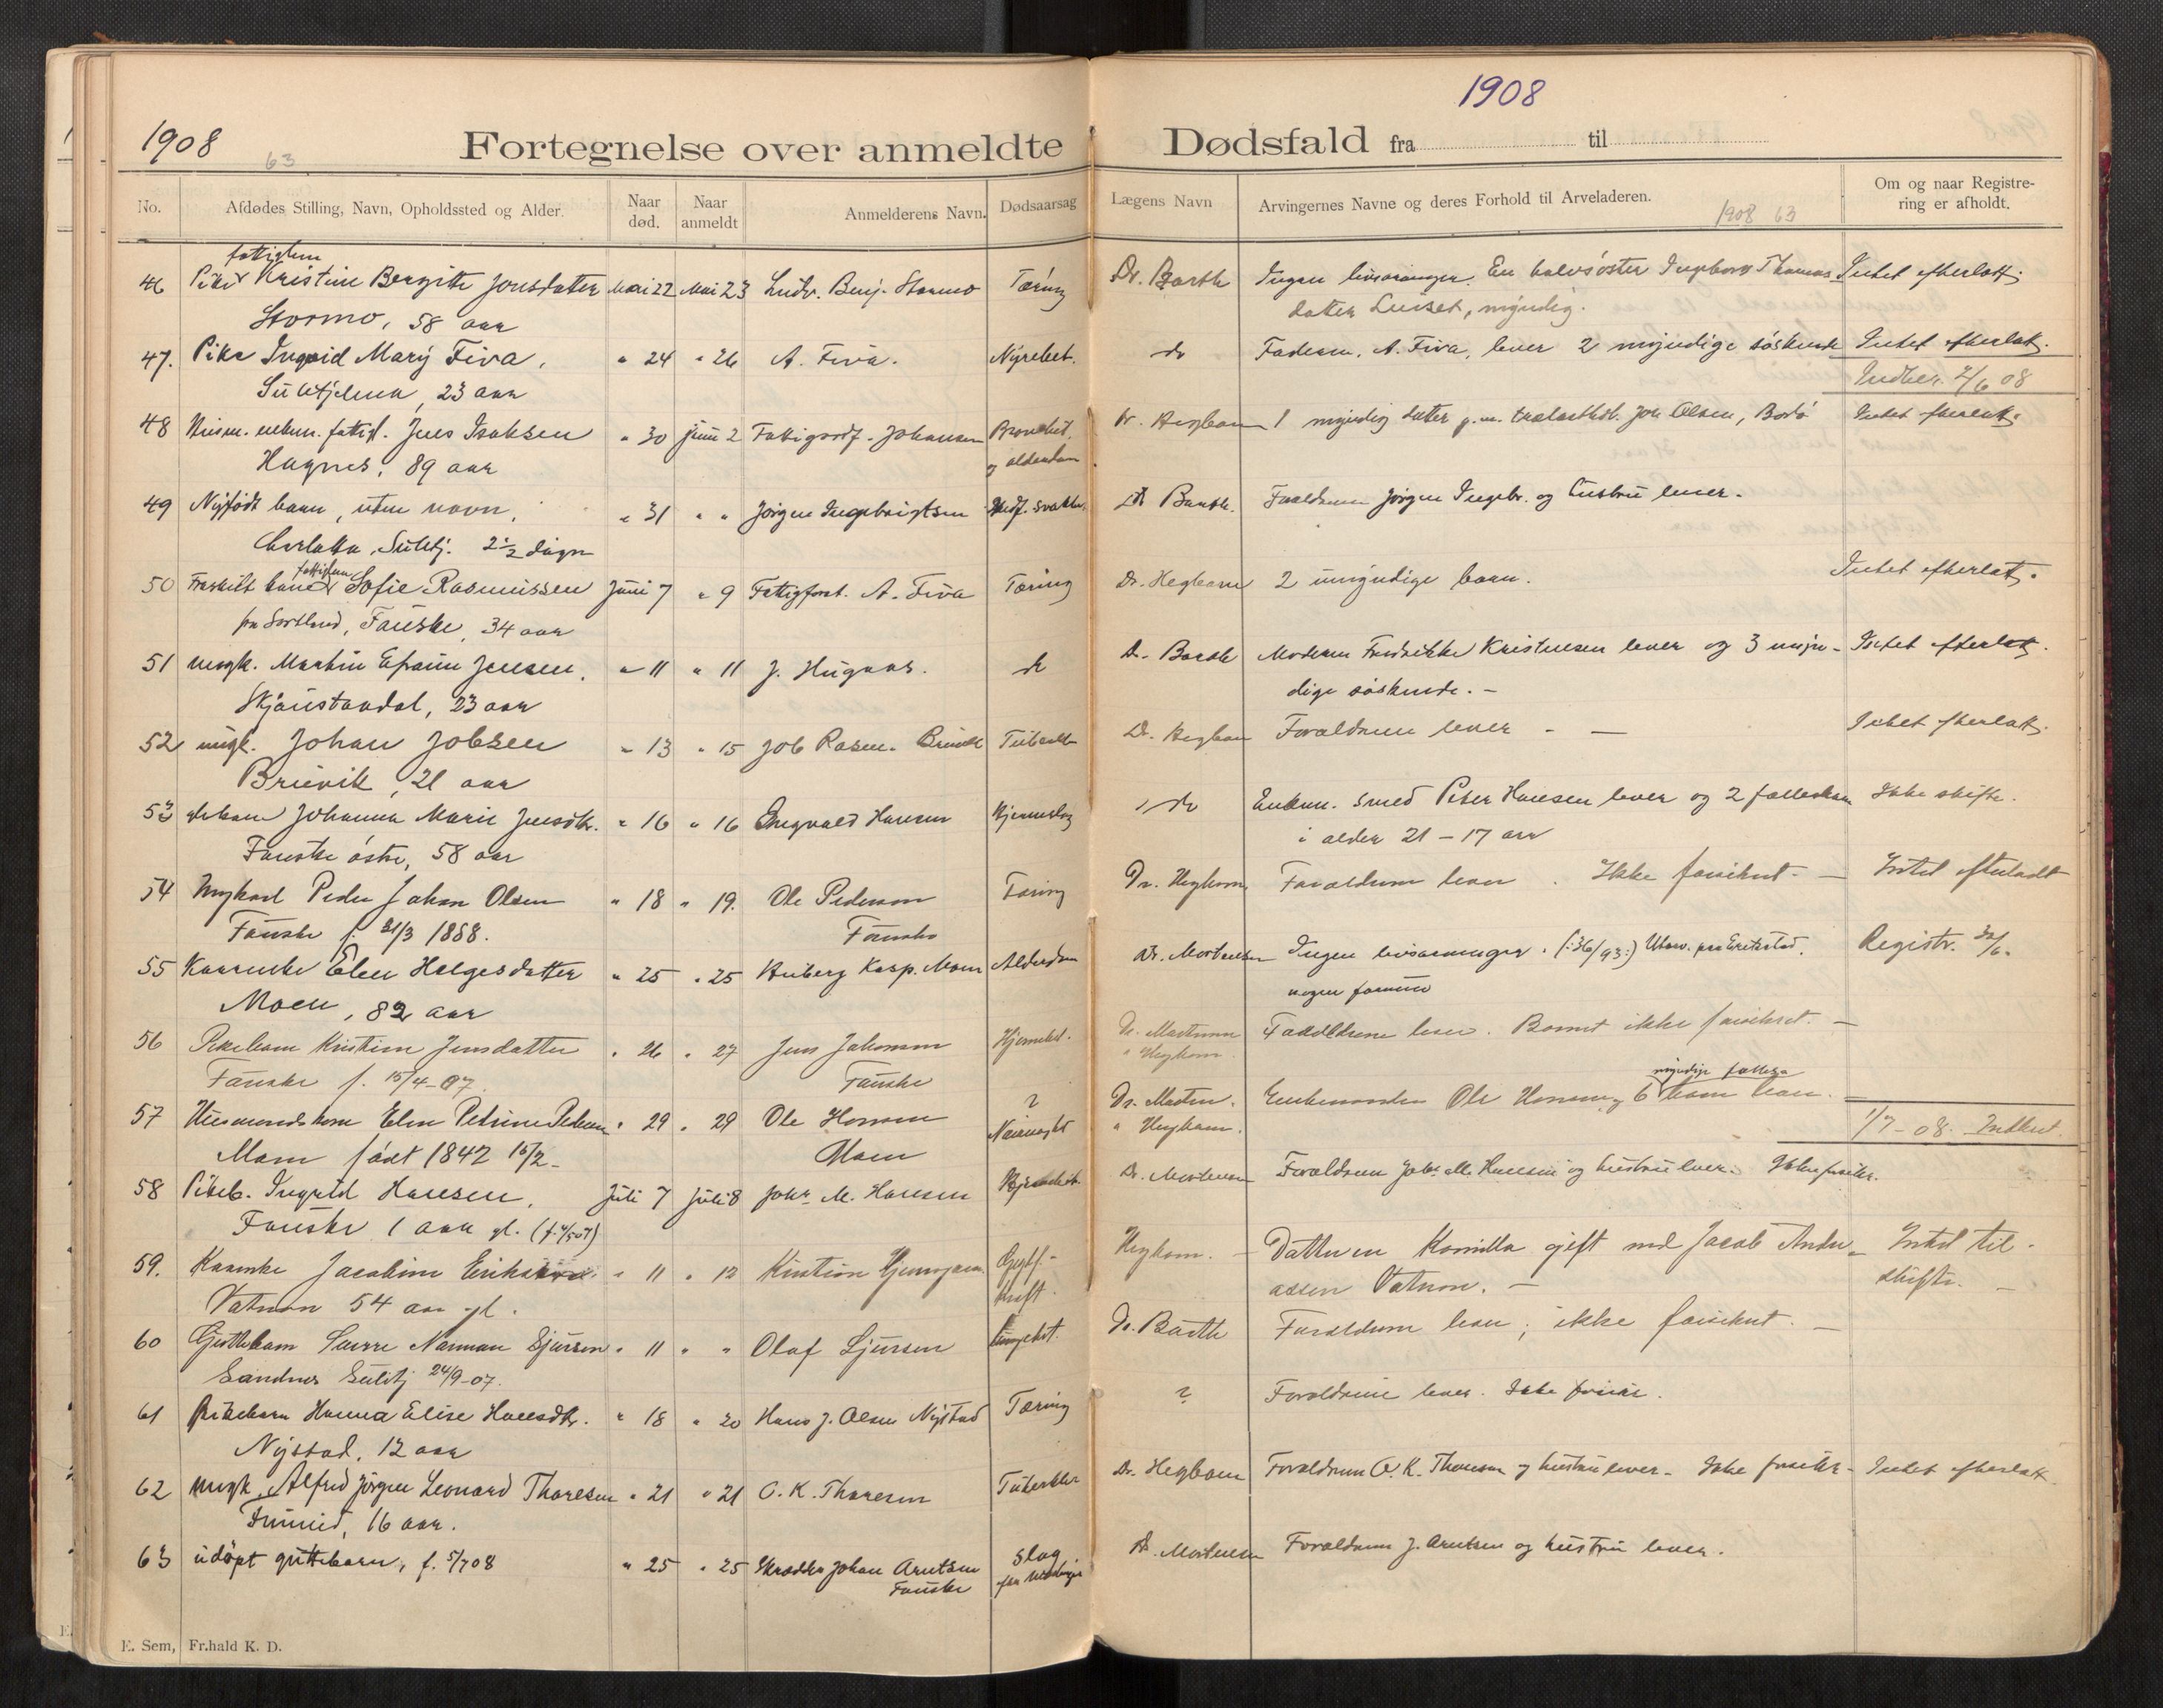 1908
63
Fortegnelse over anmeldte
No.
Afdødes Stilling, Navn, Opholdssted og Alder.
Naar død.
Naar anmeldt
Anmelderens Navn.
Dødsaarsag
fattiglem
46 Pike Kristine Bergitte Jonsdatter Mai 22 Mai 23 Ludv. Benj. Stormo Tæring
Stormo, 58 aar
47. Pike Ingrid Mary Fiva, " 24 " 26 A. Fiva. Nyrebet.
Sulitjelma, 23 aar
48 Husm. enkem. fattigl. Jens Isaksen " 30 Juni 2 Fattigforst. Johansen Bronchit.
Hagnes, 89 aar og alderdom
49 Nyfødt barn, uten navn, " 31 " " Jørgen Ingebrigtsen Medf. svakh.
Charlotta, Sulitj. 2 1/2 døgn
50 Fraskilt kone fattiglem Sofie Rasmussen Juni 7 " 9 Fattigforst. A. Fiva Tæring
fra Sortland, Fauske, 34 aar
51 ungk. Martin Efraim Jensen, " 11 " 11 J. Hugaas. do
Skjønstaadal, 23 aar
52 ungk. Johan Jobsen " 13 " 15 Job Rasm. Tuberk
Bruvik, 21 aar
53 Johanna Marie Jensdtr. " 16 " 16 Ingvald Hansen Hjerneslag
Fauske østre, 58 aar
54 Ungkarl Peder Johan Olsen " 18 " 19. Ole Pedersen Tæring
Fauske f. 21/3 1888. Fauske
55 Kaarenke Elen Helgesdatter " 25 " 25 Kasp. Moen Alderdom
Moen, 82 aar
56 Pikebarn Kristine Jensdatter " 26 " 27 Jens Johansen Hjernebet.
Fauske f. 15/4-07. Fauske
57 Husmandskone Elen Petrine Pedersen " 29 " 29 Ole Hansen ?
Moen født 1842 15/2- Moen
58 Pikeb. Ingrid Hansen, Juli 7 Juli 8 Johs M. Hansen
Fauske 1 aar gl.
59. Kaarenke Jacobine " 11 " 12 Kristian
Vatnan 54 aar gl. kræft.
60 Guttebarn Sverre Norman Sjursen " 11 " " Olaf Sjursen Lungebet.
Sandnes Sulitj 24/9-07.
61 Pikebarn Hanna Elise Hansdtr. " 18 " 20 Hans J. Olsen Nystad Tæring
Nystad, 12 aar
62 ungk. Alfred Jørgen Leonard Thoresen " 21 " 21 O. K. Thoresen Tuberkler
16 aar.
63 udøpt guttebarn, f. 5/7 08 " 25 " 25 Skrædder Johan Arntsen Slag
Fauske
E. Sem, Fr.hald K. D.
1908
Dødsfald fra til
Lægens Navn
Arvingernes Navne og deres Forhold til Arveladeren.
1908 63
Om og naar Registrering er afholdt.
Dr. Barth Ingen livsarvinger. En halvsøster Ingeborg Thomas- Intet efterlatt.
datter Luiset, myndig.
do Faderen, A. Fiva, lever 2 myndige søskende Intet efterlatt.
Indber. 2/6 08
Dr. Hegbom 1 myndig datter g.m. Joh Olsen, Bodø Intet efterlatt.
Dr Barth. Forældrene Jørgen Ingebr. og hustru lever.
Dr. Hegbom 2 umyndige barn. Intet efterlatt.
Dr. Barth Moderen Fredrikke Kristensen lever og 3 umyn- Intet efterlatt.
dige søskende. -
Dr. Hegbom Forældrene lever - Intet efterlatt.
" do Enkem. smed Peter Hansen lever og 2 fællesbarn Ikke skifte.
i alder 21 - 17 aar
Dr. Hegbom Forældrene lever. Ikke forsikret. - Intet efterladt
Dr. Mortensen Ingen livsarvinger. (:36/93:) Registr. /6.
formue
Dr. Mortensen Forældrene lever. Barnet ikke forsikret. -
" Hegbom.
myndige fælles
Dr. Morten. Enkemanden Ole Hansen og 6 barn lever.
" Hegbom. 1/7-08. Indbert.
Dr. Mortensen Forældrene Johs M. Hansen og hustru lever. Ikke forsikr.
Hegbom. - Datteren Kamilla gift med Jacob Andre- Intet til
assen Vatnan. - skifte. -
Dr. Barth Forældrene lever; ikke forsikret. -
? Forældrene lever. Ikke forsikr.
Dr. Hegbom Forældrene O. K. Thoresen og hustru lever - Ikke forsikr - Intet efterlatt
Dr. Mortensen Forældrene J. Arntsen og hustru lever.